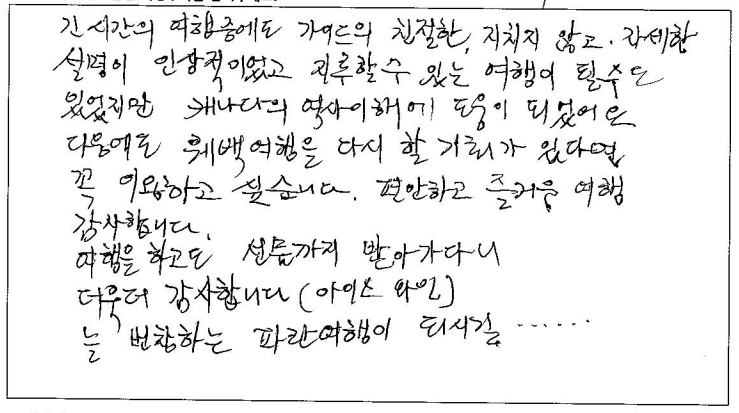 긴 시간의 여행중에도 가이드의 친절한, 지치지 않고. 자세한
설명이 인상적이었고 지루할수 있는 여행이 될수도
있었지만 캐나다의 역사이해에 도움이 되었어요
다음에도 퀘백여행을 다시 할 기회가 있다면
꼭 이용하고 싶습니다. 편안하고 즐거운 여행
감사합니다.
여행을 하고도 선물까지 받아가다니
더욱더 감사합니다 (아이스 와인)
늘 번창하는 파란여행이 되시길 ......